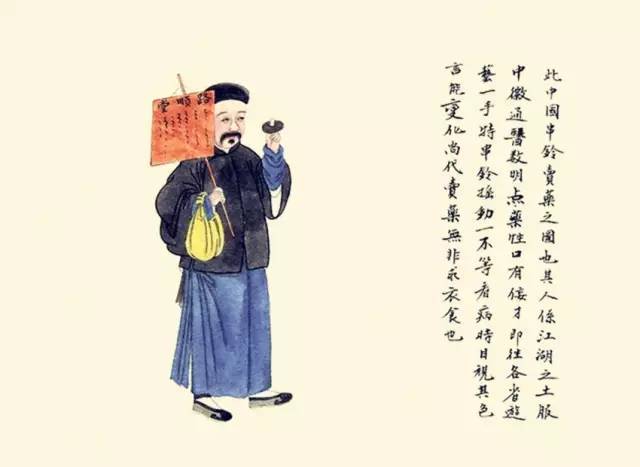 路順堂
此中國串鈴賣藥之圖也其人係江湖之士服
中微通醫数明点藥性口有佞才即往各省遊
藝一手持串鈴搖動一不等看病時目視其色
言能變化尚代賣藥無非求衣食也